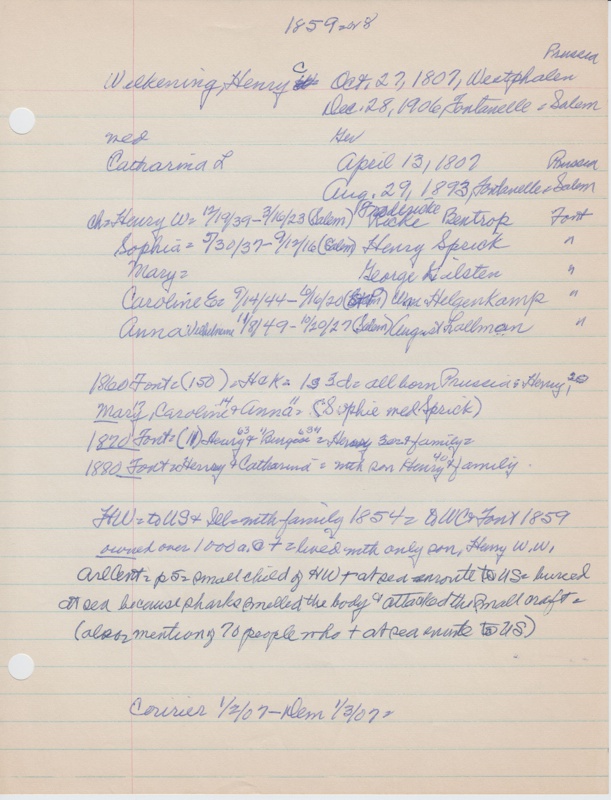 1859
Prussia
Wilkening, Henry C Oct. 27, 1807, Westphalen
Dec. 28, 1906, Fontanelle = Salem
med Ger
Catharina L April 13, 1807 Prussia
Aug. 29, 1893, Fontanelle = Salem
ch = Henry W = 12/19/39 - 3/16/23 (Salem) Rieke Bentrop Font
Sophia = 5/30/37 - 9/12/16 (Salem) Henry Sprick "
Mary = George Hilsten "
Caroline E = 9/14/44 - 10/16/20 Wm. Helgenkamp "
Anna Wilhelmina 11/8/49 - 10/20/27 (Salem) August Sallman "
1860 Font = (150) = H & K = 1s 3d = all born Prussia = Henry, 20
Mary, Caroline 14 & Anna 11 = (Sophie med Sprick)
1870 Font = (11) Henry 63 & = Henry & family =
1880 Font = Henry & Catharina = with son Henry 40 & family.
HW = to US & Ill = with family 1854 = to WC & Font 1859
owned over 1000 a. + = lived with only son, Henry W. W,
ArlCent = p 5 = small child of HW + at sea enroute to US = buried
at sea because sharks smelled the body & attacked the small craft =
(also mentions 70 people who + at sea enroute to US)
Courier 1/2/07 - Dem 1/3/07 =